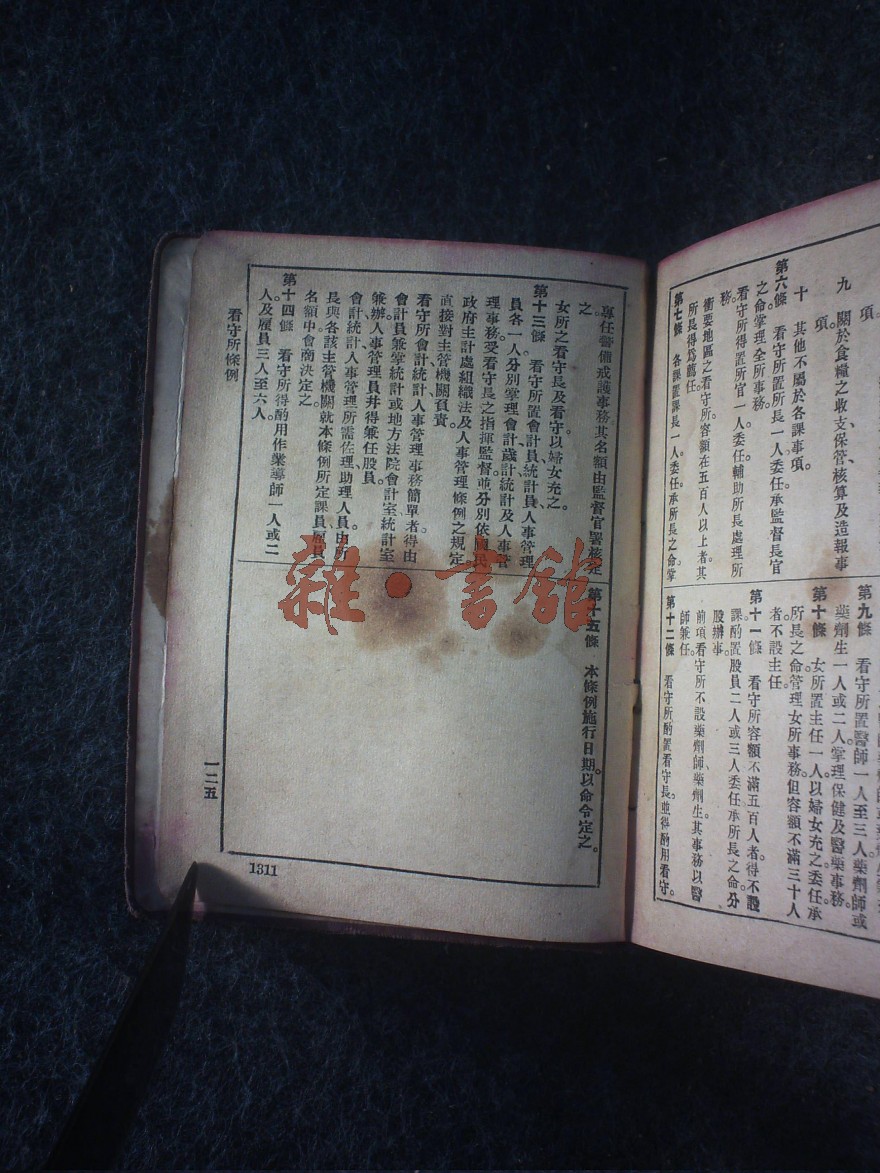 項。
九　關於食糧之收支、保管、核算及造報事
項。
十　其他不屬於各課事項。
第六條　看守所置所長一人、委任、承監督長官
之命、掌理全所事務。
看守所得置所官一人、委任、輔助所長處理所
務。
衝要地區之看守所、容額在五百人以上者、其
所長得爲薦任。
第七條　各課置課長一人、委任、承所長之命、掌
第九條　看守所置醫師一人至三人、藥劑師或
藥劑生一人或二人、掌理保健及醫藥事務。
第十條　女所置主任一人、以婦女充之、委任、承
所長之命、管理女所事務、但容額不滿三十人
者、不設主任。
第十一條　看守所容額不滿五百人者、得不設
課、酌置股員二人或三人、委任、承所長之命、分
股辦事。
前項看守所不設藥劑師、藥劑生、其事務以醫
師兼任。
第十二條　看守所酌置看守長、並得酌用看守、
專任警備戒護事務、其名額由監督官署核定
之。
女所之看守長及看守、以婦女充之。
第十三條　看守所置會計員、統計員、人事管理
員各一人、分別掌理會計、歲計、統計及人事管
理事務、受看守長之指揮監督、並分別依國民
政府主計處組織法及人事管理條例之規定、
直接對主管機關負責。
看守所會計統計人事管理事務簡單者、得由
會計員兼掌統計、或地方法院會計室統計室
兼辦、人事管理員并得兼任股員。
會計統計人事管理所需佐理助理人員、由所
長與各該主管機關就本條例所定課員雇員
名額中會商決定之。
第十四條　看守所得酌用作業導師一人或二
人及雇員三人至六人。
第十五條　本條例施行日期、以命令定之。
看守所條例
一二五
1311
雜·書館